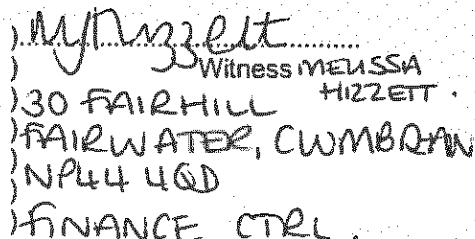 ) MHizzett
) Witness MELISSA HIZZETT.
) 30 FAIRHILL
) FAIRWATER, CWMBRAN
) NP44 4QD
) FINANCE CTRL.